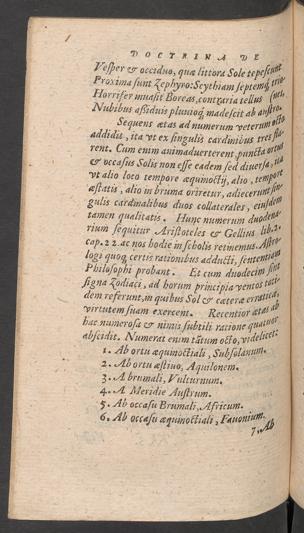 DOCTRINA DE
Vesper & occiduo, quæ littora Sole tepescunt
Proxima sunt Zephyro: Scythiam septemq́; trio-
Horrifer inuasit Boreas, contraria tellus
Nubibus aßiduis pluuioq́; madescit ab austro.
Sequens ætas ad numerum veterum octo
addidit, ita vt ex singulis cardinibus tres fla-
rent. Cum enim animaduerterent puncta ortus
& occasus Solis non esse eadem sed diuersa,
vt alio loco tempore æquinoctij, alio, tempore
æstatis, alio in bruma oriretur, adiecerunt sin-
gulis cardinalibus duos collaterales, eiusdem
tamen qualitatis. Hunc numerum duodena-
rium sequitur Aristoteles & Gellius lib. 2.
cap. 22. ac nos hodie in scholis retinemus. Astro-
logi quoq́; certis rationibus adducti, sententiam
Philosophi probant. Et cum duodecim sint
signa Zodiaci, ad horum principia ventos tati-
dem referunt, in quibus Sol & cæteræ erraticæ,
virtutem suam exercent. Recentior ætas ab
hac numerosa & nimis subtili ratione quatuor
abscidit. Numerat enim tãtum octo, videlicet:
1. Ab ortu æquinoctiali, Subsolanum.
2. Ab ortu æstiuo, Aquilonem.
3. A brumali, Vulturnum.
4. A Meridie Austrum.
5. Ab occasu Brumali, Africum.
6. Ab occasu æquinoctiali, Fauonium.
7. Ab